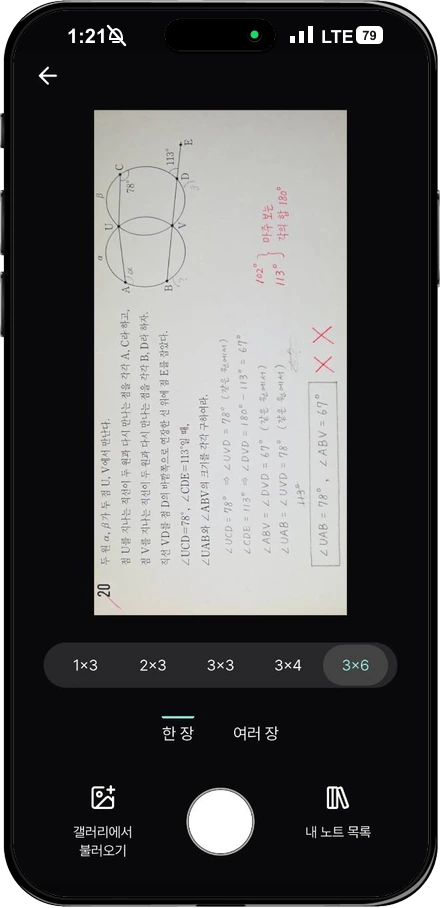 1:21
LTE 79
20
두 원 α, β가 두 점 U, V에서 만난다.
점 U를 지나는 직선이 두 원과 다시 만나는 점을 각각 A, C라 하고,
점 V를 지나는 직선이 두 원과 다시 만나는 점을 각각 B, D라 하자.
직선 VD를 점 D의 바깥쪽으로 연장한 선 위에 점 E를 잡았다.
∠UCD=78°, ∠CDE=113°일 때,
∠UAB와 ∠ABV의 크기를 각각 구하여라.
α
β
A
U
C
78°
B
V
D
113°
E
∠UCD = 78° ⇒ ∠UVD = 78° (같은 원에서)
∠CDE = 113° ⇒ ∠DVD = 180° - 113° = 67°
∠ABV = ∠DVD = 67° (같은 원에서)
∠UAB = ∠UVD = 78° (같은 원에서)
113°
∠UAB = 78°, ∠ABV = 67°
102°
113°
마주 보는
각의 합 180°
1×3
2×3
3×3
3×4
3×6
한 장
여러 장
갤러리에서
불러오기
내 노트 목록